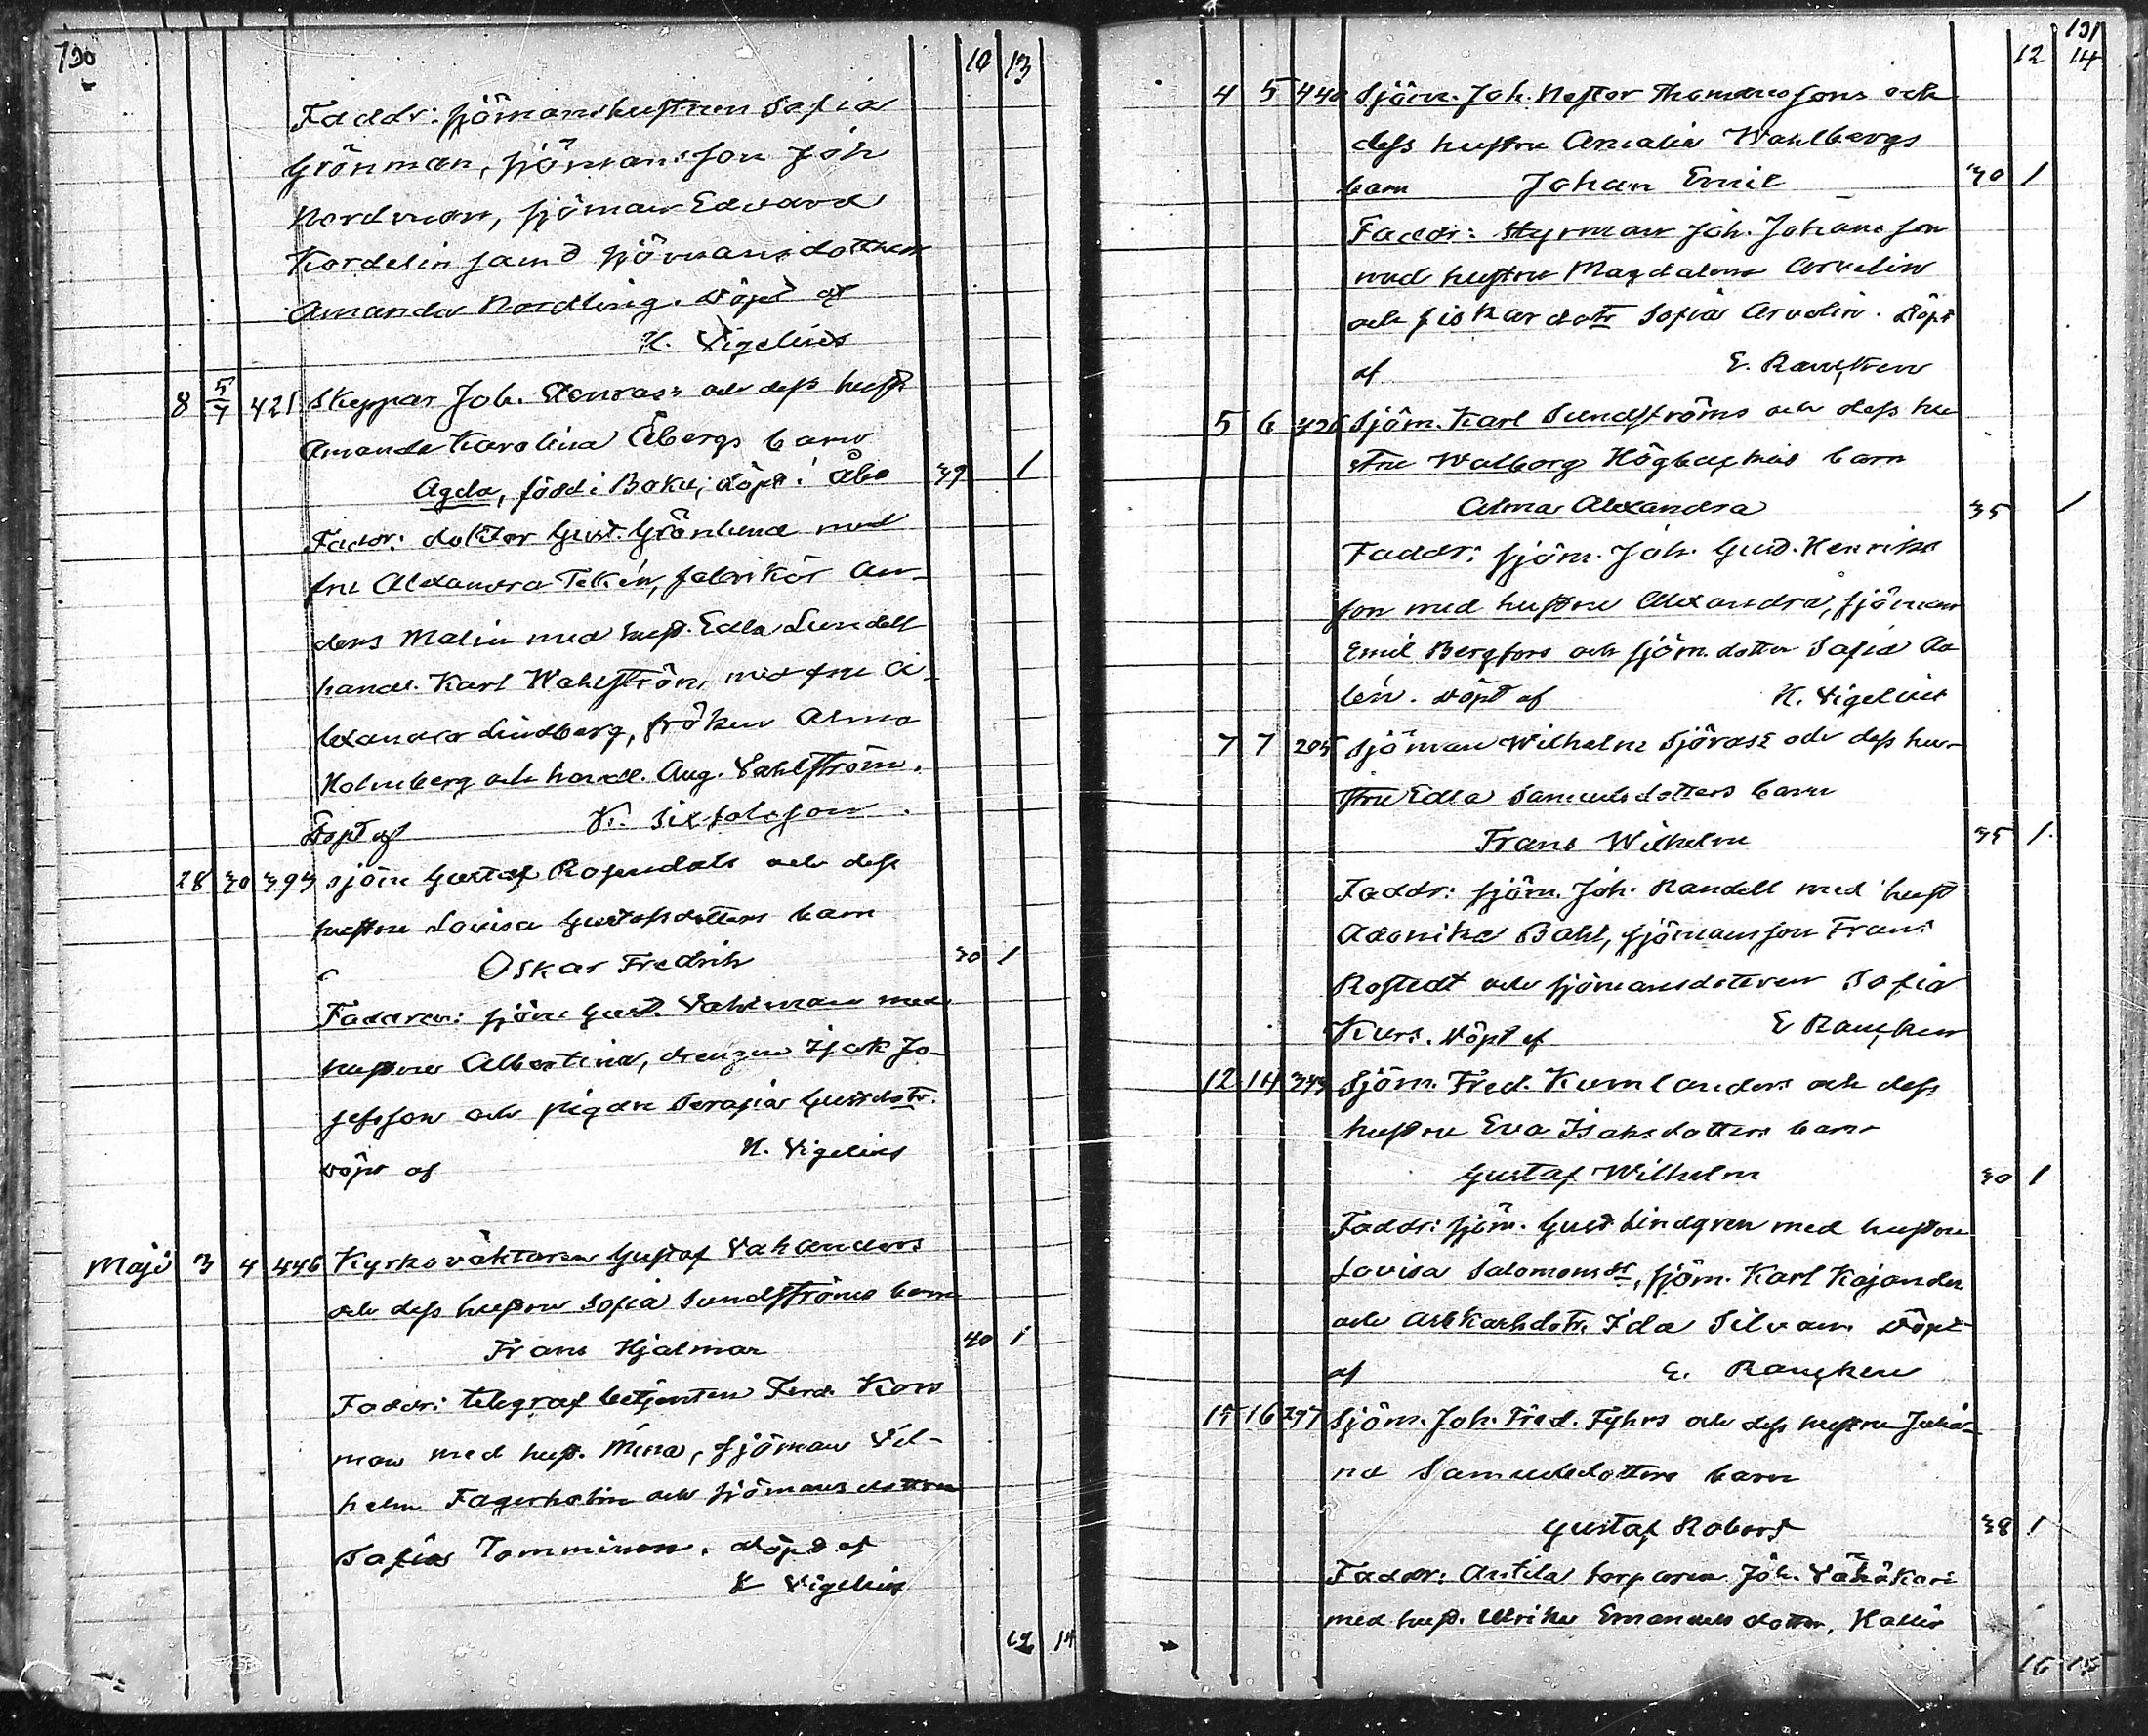 130
10 13
Faddr: sjömanshustrun Sofia
Grönman, sjömansson Joh
Nordman, sjöman Edvard
Kordelin samt sjömansdottren
Amanda Nordling. Döpt af
K. Vigelius
8 5/7 421 Skeppar Joh. och dess hustr
Amanda Karolina Åbergs barn
Agda, född i Baku; döpt i Åbo 39 1
Faddr: doktor Gust. Grönlund med
fru Alexandra Tekén, fabrikör An-
ders Malin med hust. Edla Lundell
handl. Karl Wahlström med fru A-
lexandra Lindberg, fröken Alma
Holmberg och handl. Aug. Vahlström.
Döpt af K. Sixtolsson.
28 30 393 sjöm Gustaf Rosendals och dess
hustru Lovisa Gustafsdotters barn
Oskar Fredrik 30 1
Faddran: sjöm Gust. med
hustru Albertina, drengen Isak Jo-
sefsson och pigan Serafia Gustdotr.
Döpt af K. Vigelius
Maji 3 4 446 Kyrkovaktaren Gustaf Vahlanders
och dess hustru Sofia Sundströms barn
Frans Hjalmar 40 1
Faddr: telegraf betjenten Ferd. Kors
man med hust. Mina, sjöman Vil-
helm Fagerholm och sjömansdottren
Sofia Tomminen. Döpt af
K Vigelius
12 14
131
12 14
4 5 440 Sjöm. Joh. Nestor Thomassons och
dess hustru Amalia Wahlbergs
barn Johan Emil 30 1
Faddr: Styrman Joh. Johansson
med hustru Magdalena Arvelin
och fiskardotr Sofia Arvelin. Döpt
af E. Rancken
5 6 326 Sjöm. Karl Sundströms och dess hu
stru Walborg barn
Alma Alexandra 35 1
Faddr: sjöm. Joh. Gust. Henriks
son med hustru Alexandra, sjöman
Emil Bergfors och sjöm. dotter Sofia Aa
lén. Döpt af K. Vigelius
7 7 205 Sjöman Wilhelm och dess hu-
stru Edla Samuelsdotters barn
Frans Wilhelm 35 1
Faddr: sjöm. Joh. Randell med hust
Adonika Bahl, sjömansson Frans
Rostedt och sjömansdottren Sofia
Kurs. Döpt af E Rancken
12 14 343 Sjöm. Fred. Kumlanders och dess
hustru Eva Isaksdotters barn
Gustaf Wilhelm 30 1
Faddr: sjöm. Gust Lindgren med hustru
Lovisa Salomonsdr, sjöm. Karl Kajander
och arbkarlsdotr. Ida Silvan Döpt
af E. Rancken
15 16 297 Sjöm. Joh. Fred. Fyhrs och dess hustru Johan-
na Samuelsdotters barn
Gustaf Robert 38 1
Faddr: Antila torparen Joh. Vähäkari
med hust. Ulrika Emanuelsdotter, Kallis
16 15